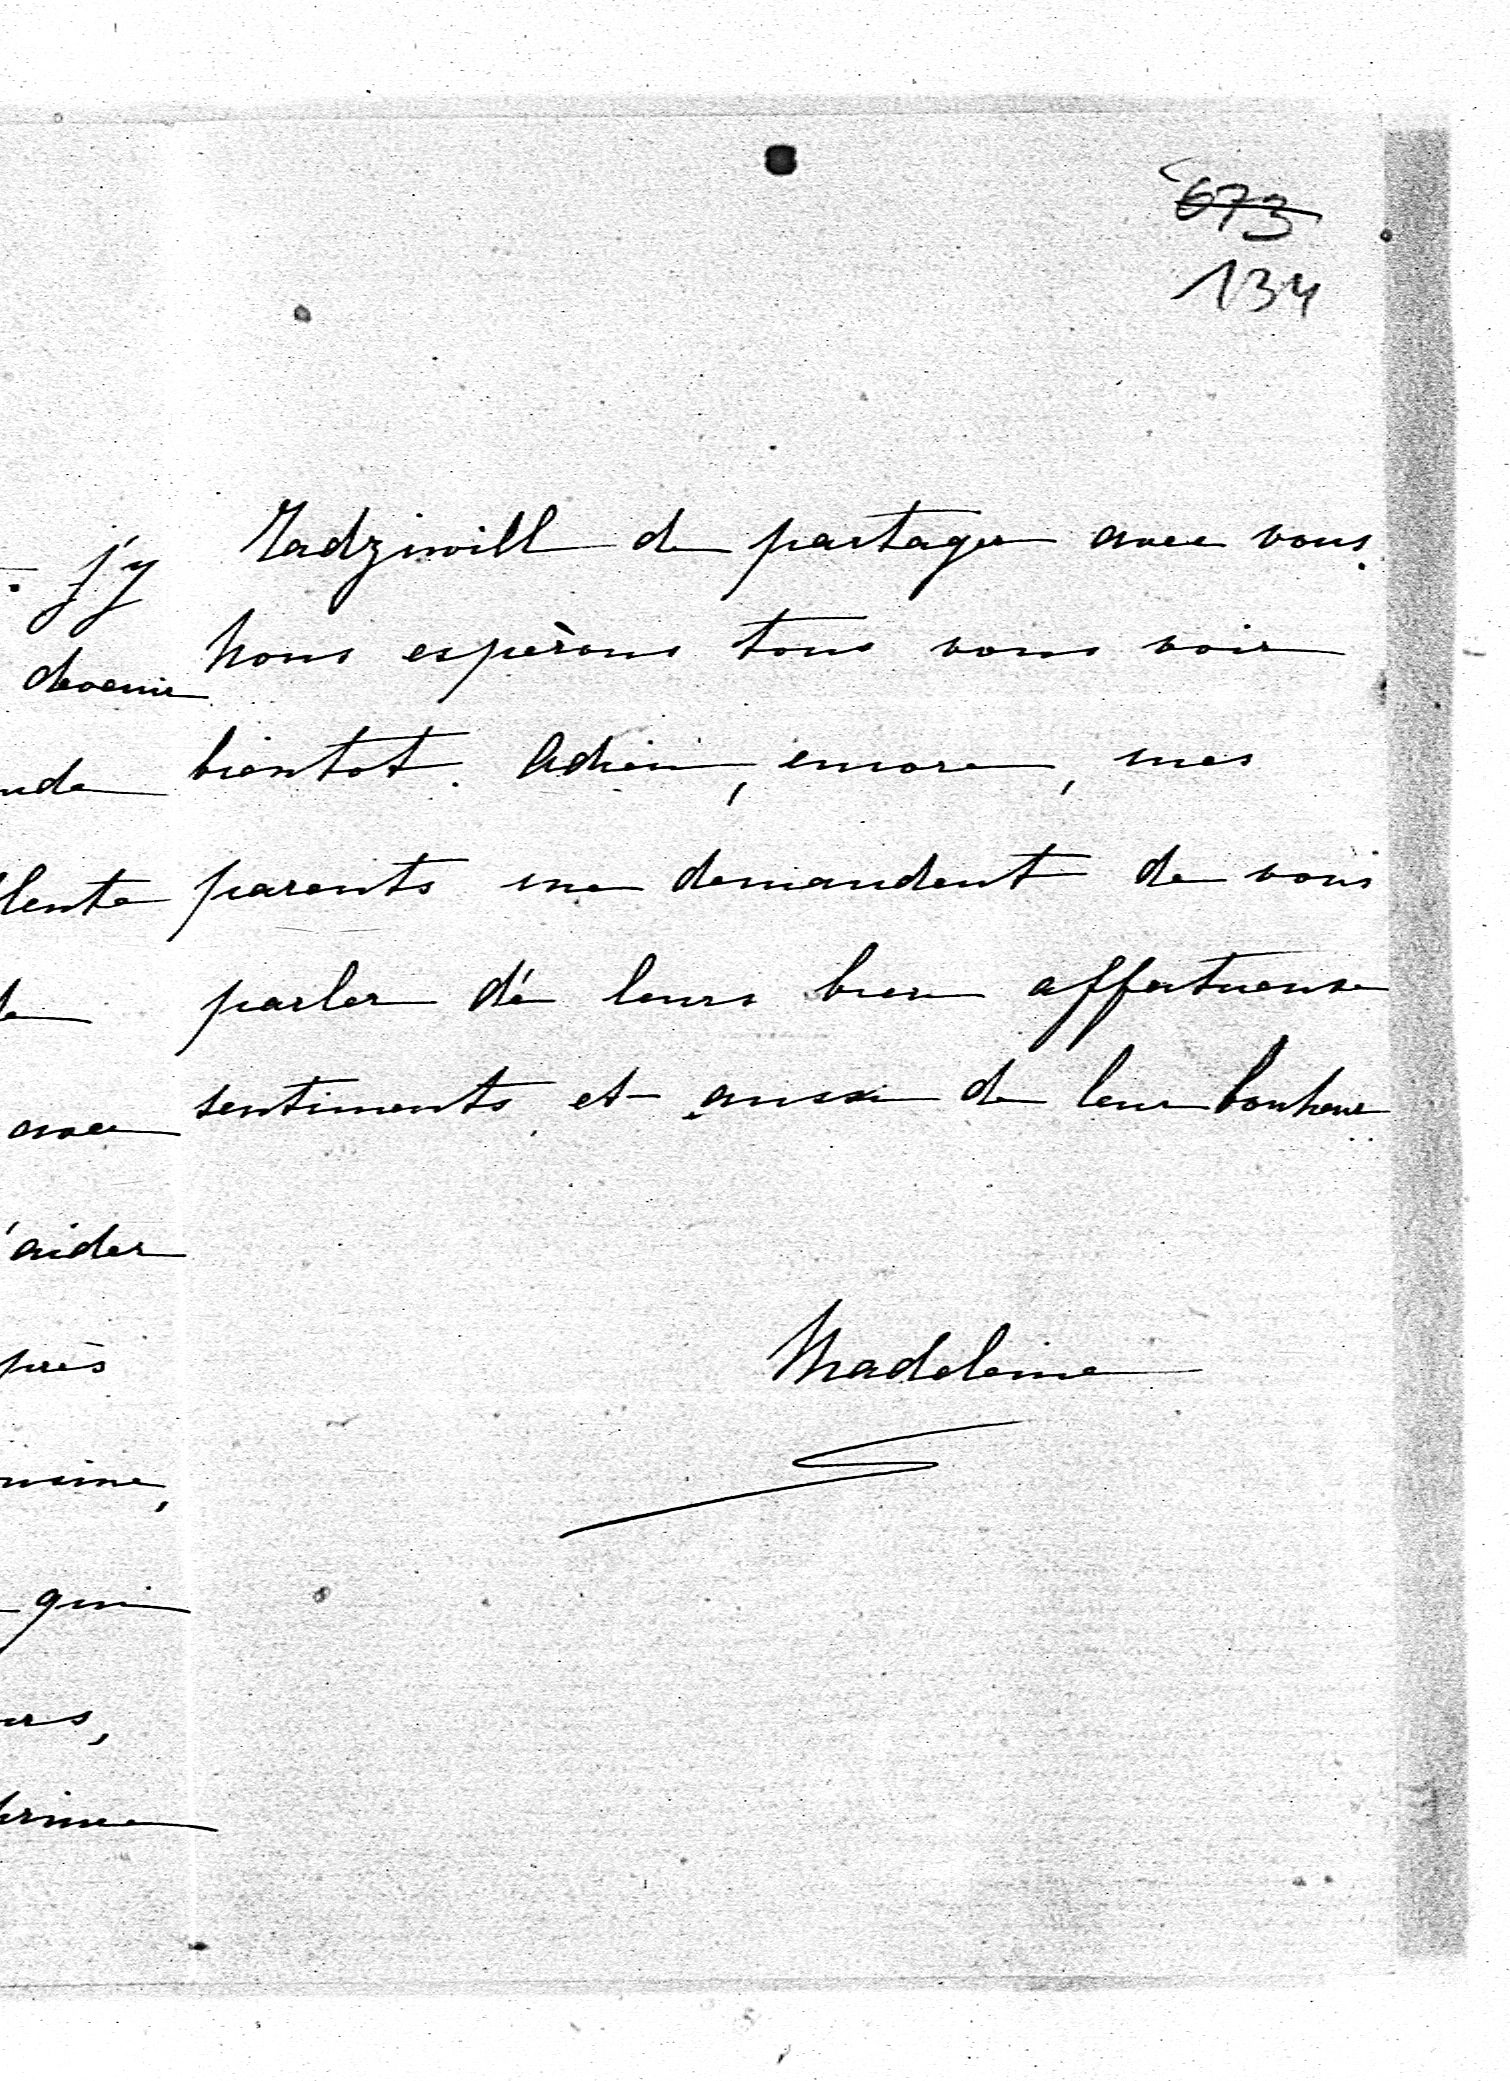 673
134
Radziwill de partager avec vous.
Nous espèrons tous vous voir
bientot. Adieu, encore, mes
parents me demandent de vous
parler dé leurs bien affectueuse
sentiments et aussi de leur bonheur
Madeleine
j'y
devenir
lente
avec
'aider
près
qui